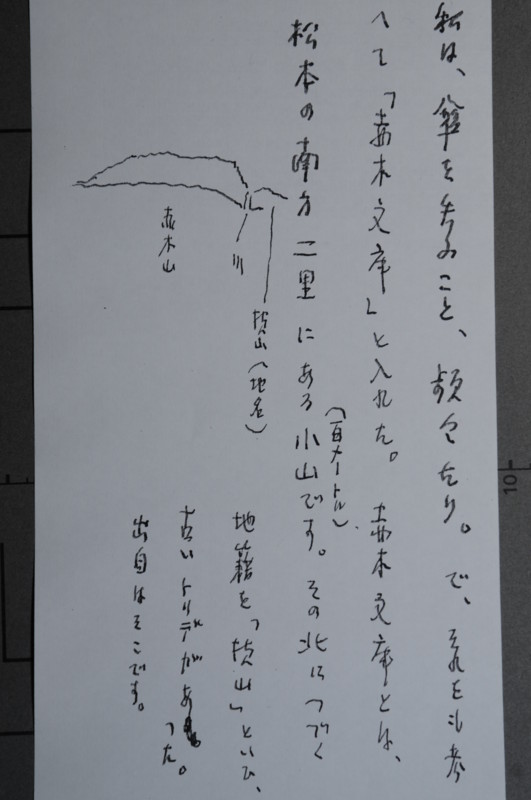 私は、傘を失ふこと、頻々たり。で、それをも考
へて「赤木文庫」と入れた。赤木文庫とは、
松本の南方二里にある小山です。その北につづく
(百メートル)
横山(地名)
川
赤木山
地籍を「横山」といひ、
古いトリデがあつた。
出自はそこです。
10